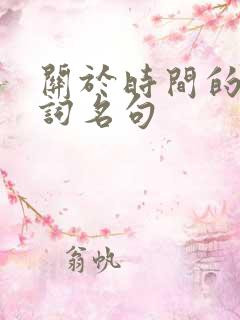 關於時間的
詞名句
翁帆